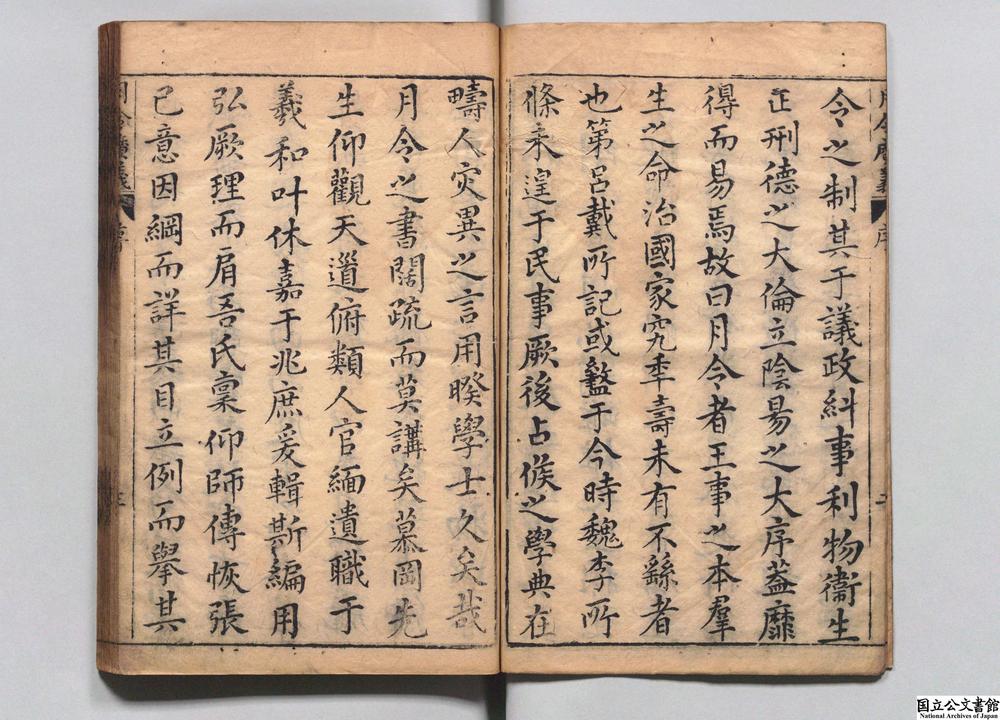 令之制其于議政糾事利物衞生
正刑德之大倫立陰昜之大序葢靡
得而易焉故曰月令者王事之本羣
生之命治國家究秊壽未有不繇者
也第呂戴所記或盭于今時魏李所
條未遑于民事厥後占候之學典在
疇人灾異之言用暌學士久矣哉
月令之書闊疏而莫講矣慕岡先
生仰觀天道俯類人官緬遺職于
羲和叶休嘉于兆庶爰輯斯編用
弘厥理而肩吾氏稟仰師傳恢張
已意因綱而詳其目立例而舉其
月令廣義
序
国立公文書館
National Archives of Japan